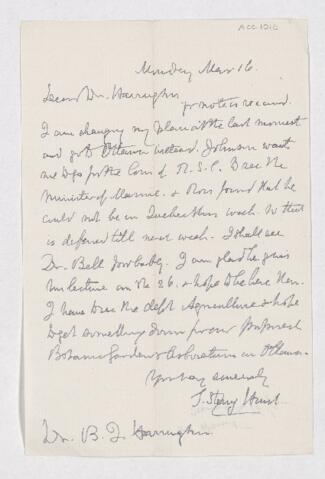 ACC 1010
Monday Mar 16.
Dear Dr. Harrington
yr note is received.
I am changing my plan at the last moment
and go to Ottawa instead. Johnson wants
me to go for the Com of R. S. C. to see the
Minister of Marine. & Ross found that he
could not be in Quebec this week. So that
is deferred till next week. I shall see
Dr. Bell probably. I am glad he gives
his lecture on the 26. & hope to be here then.
I have to see the dept Agriculture & hope
to get something done for our proposed
Botanic Garden & Arboretum in Ottawa.
Yours very sincerely
T. Sterry Hunt
Dr. B. J. Harrington.